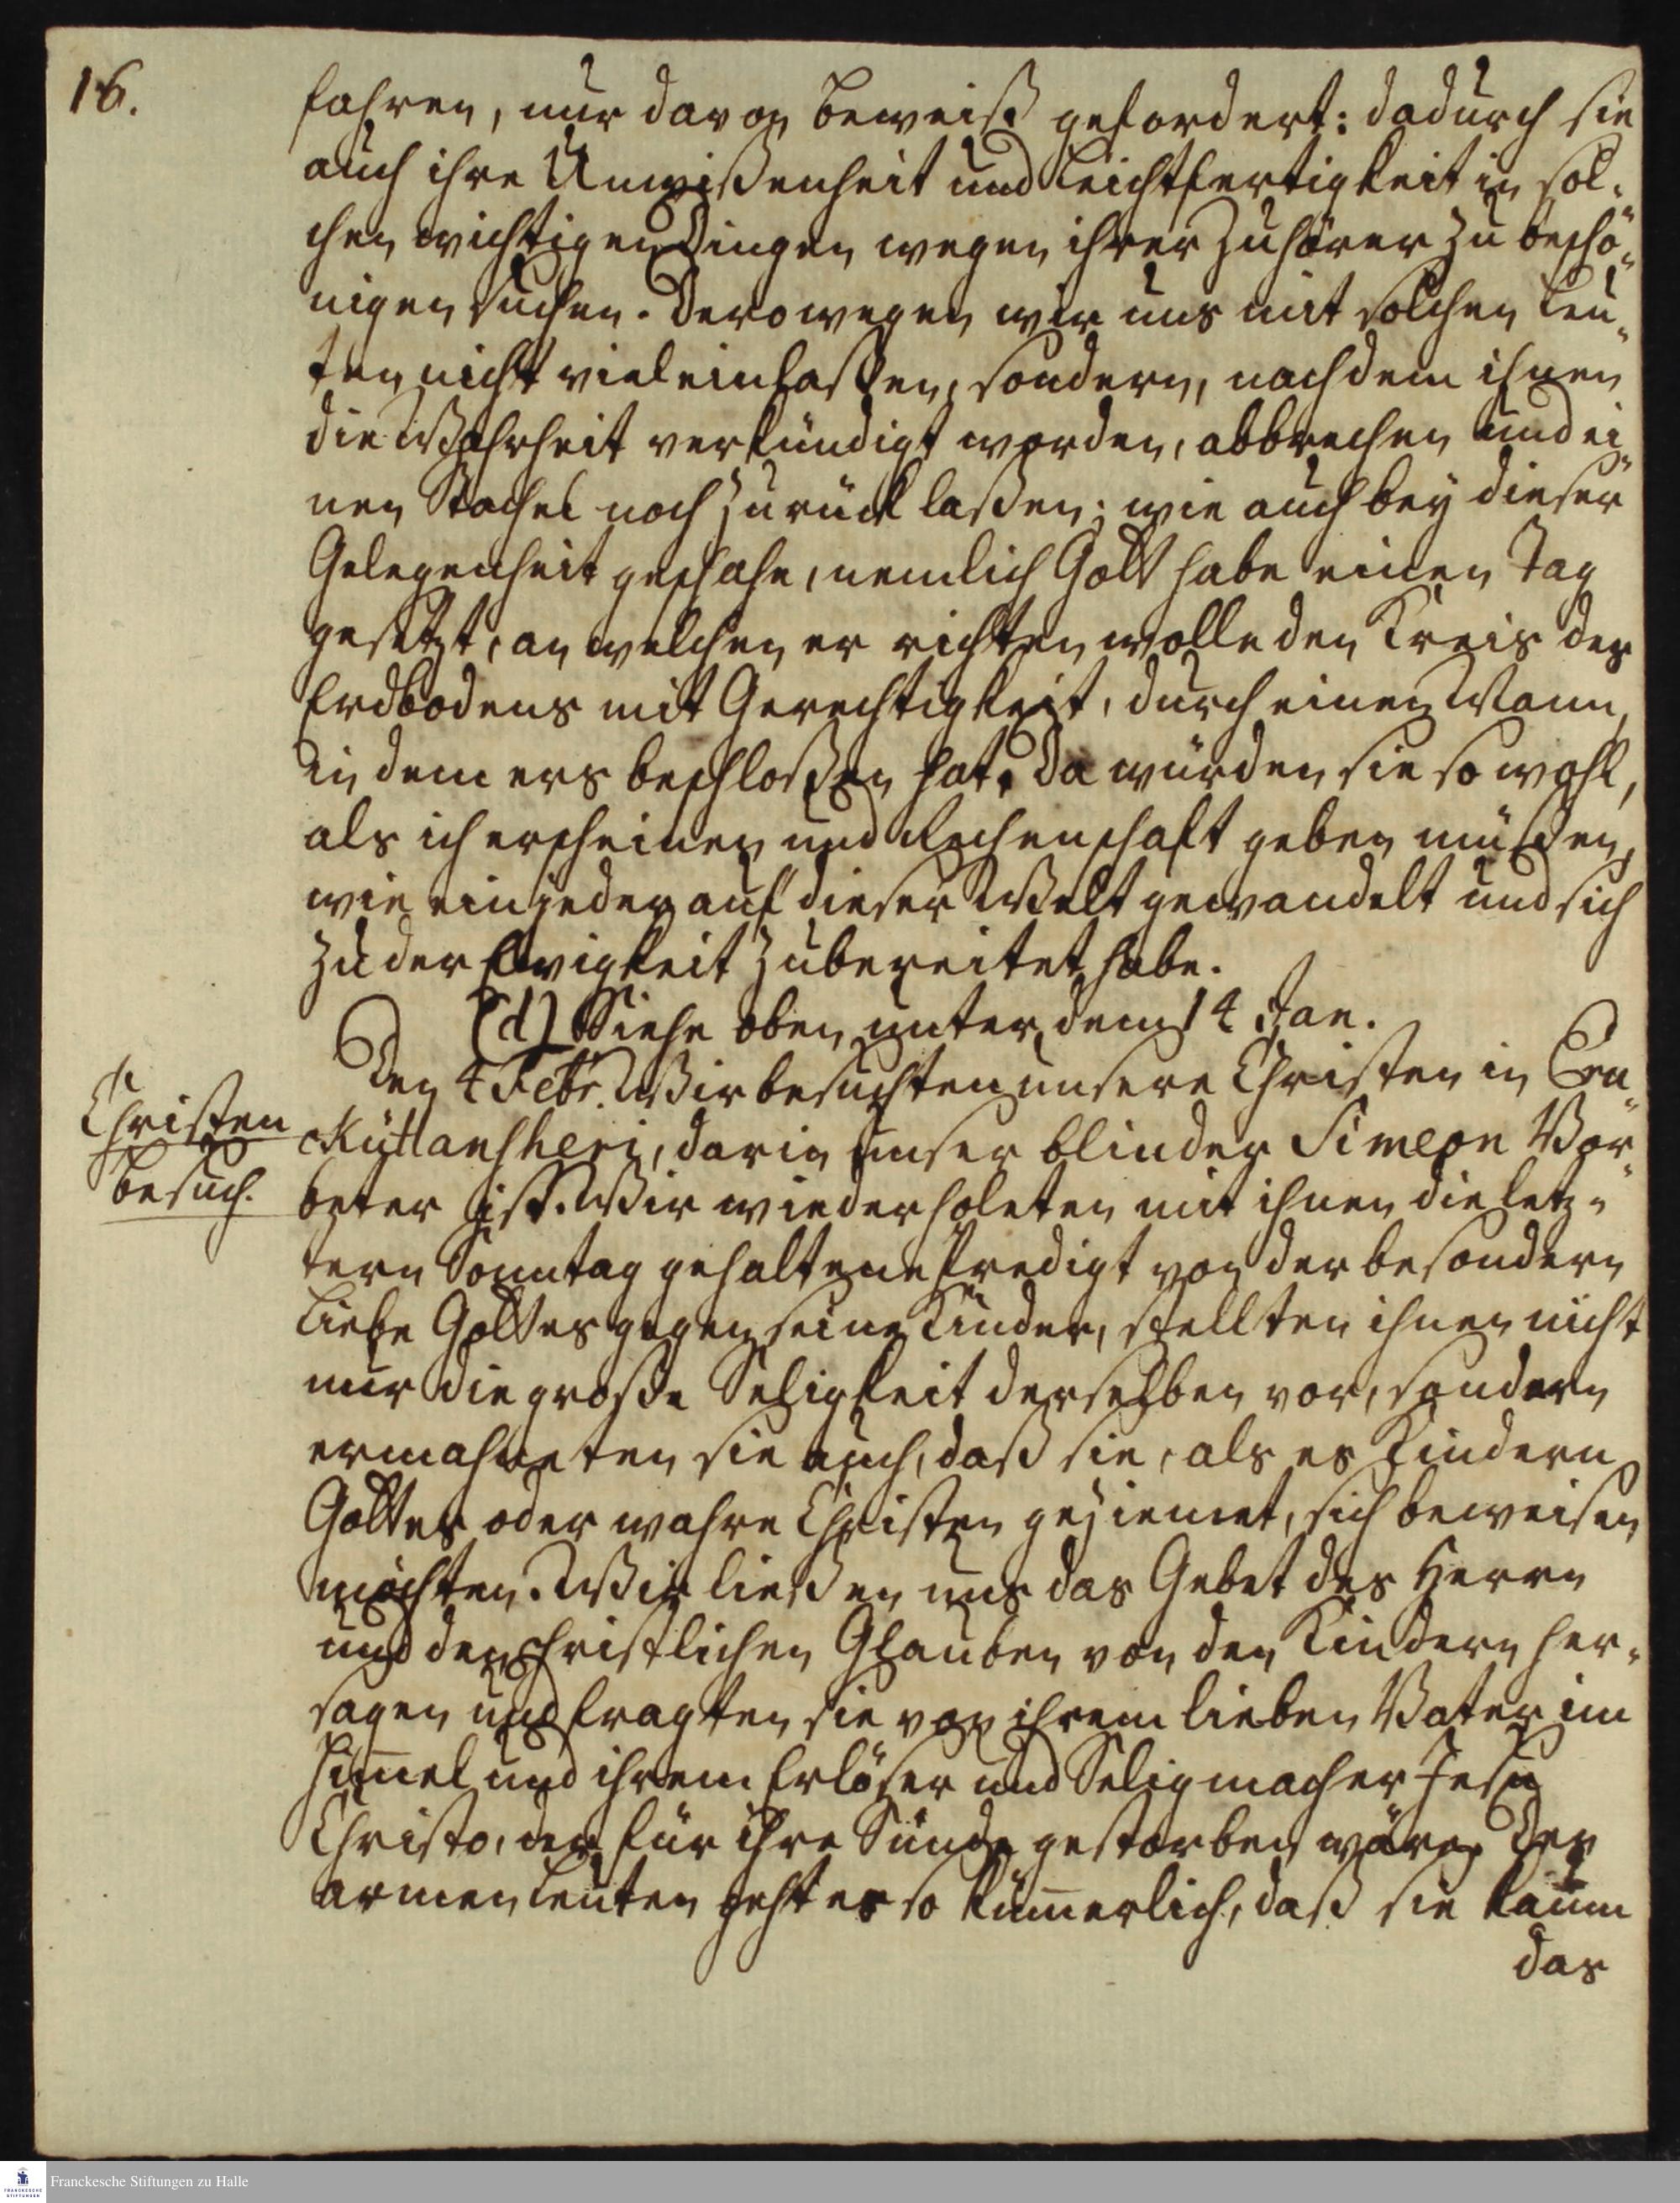 16.
fahren, nur davon Beweiß gefordert: dadurch sie
auch ihre Unwißenheit und Leichtfertigkeit in sol-
chen wichtigen Dingen wegen ihrer Zuhörer zu beschö-
nigen suchen. Derowegen wir uns mit solchen Leu-
ten nicht viel einlaßen, sondern, nachdem ihnen
die Wahrheit verkündigt worden, abbrechen und ei-
nen Stachel noch zurück laßen; wie auch bey dieser
Gelegenheit geschahe, nemlich Gott habe einen Tag
gesetzt, an welchen er richten wolle den Kreis des
Erdbodens mit Gerechtigkeit, durch einen Mann,
in dem ers beschloßen hat. Da würden sie so wohl,
als ich erscheinen und Rechenschaft geben müßen,
wie ein jeder auf dieser Welt gewandelt und sich
zu der Ewigkeit zubereitet habe.
(d) Siehe oben unter dem 14 Jan.
Den 4 Febr. Wir besuchten unsere Christen in Eru-
Christen
besuch.
küttansheri, darin unser blinder Simeon Vor-
beter ist. Wir wiederholeten mit ihnen die letz-
tern Sonntag gehaltene Predigt von der besondern
Liebe Gottes gegen seine Kinder, stellten ihnen nicht
nur die große Seligkeit derselben vor, sondern
ermahneten sie auch, daß sie, als es Kindern
Gottes oder wahre Christen geziemet, sich beweisen
möchten. Wir ließen uns das Gebet des Herrn
und den christlichen Glauben von den Kindern her-
sagen und fragten sie von ihrem lieben Vater im
Him̄el und ihrem Erlöser und Seligmacher Jesu
Christo, der für ihre Sünde gestorben wäre. Den
armen Leuten geht es so küm̄erlich, daß sie kaum
das
Franckesche Stiftungen zu Halle